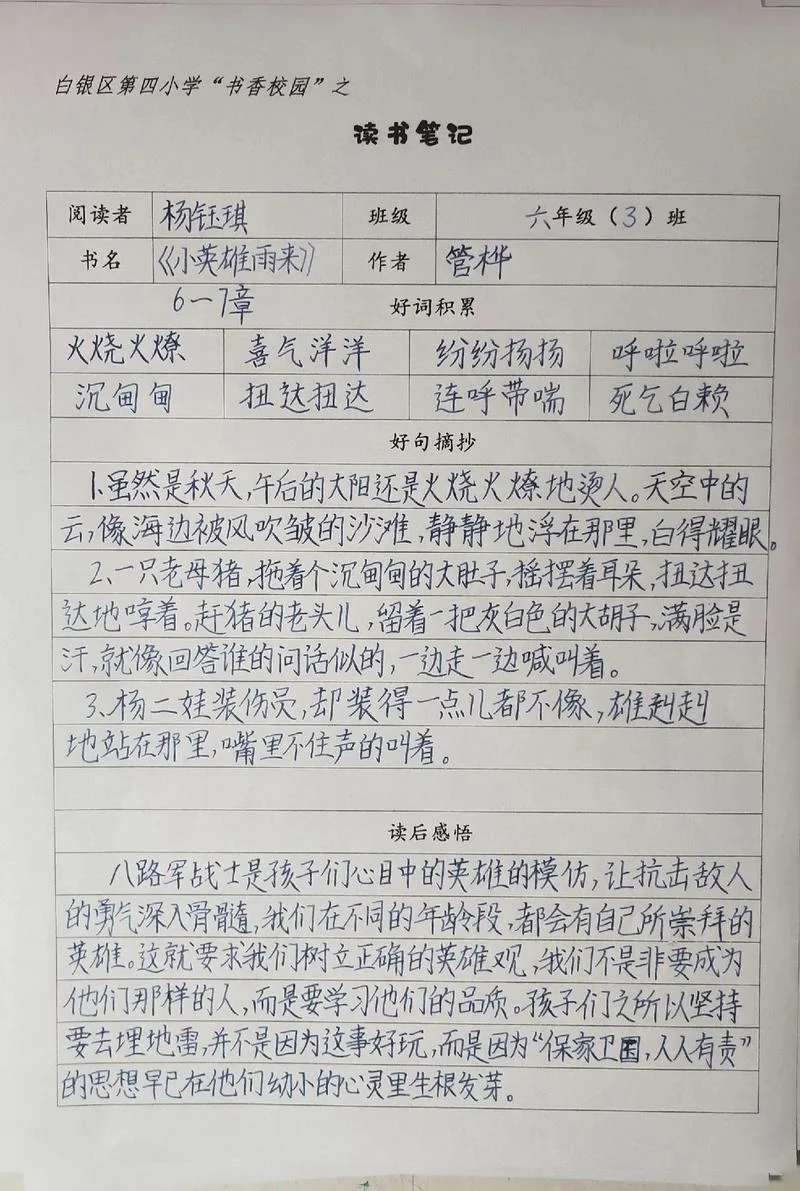 白银区第四小学“书香校园”之
读书笔记
阅读者 杨钰琪 班级 六年级（3）班
书名 《小英雄雨来》 作者 管桦
6—7章 好词积累
火烧火燎 喜气洋洋 纷纷扬扬 呼啦呼啦
沉甸甸 扭达扭达 连呼带喘 死乞白赖
好句摘抄
1.虽然是秋天,午后的太阳还是火烧火燎地烫人。天空中的
云,像海边被风吹皱的沙滩,静静地浮在那里,白得耀眼。
2、一只老母猪,拖着个沉甸甸的大肚子,摇摆着耳朵,扭达扭
达地哼着。赶猪的老头儿,留着一把灰白色的大胡子,满脸是
汗,就像回答谁的问话似的,一边走一边喊叫着。
3、杨二娃装伤员,却装得一点儿都不像,雄赳赳
地站在那里,嘴里不住声的叫着。
读后感悟
八路军战士是孩子们心目中的英雄的模仿,让抗击敌人
的勇气深入骨髓,我们在不同的年龄段,都会有自己所崇拜的
英雄。这就要求我们树立正确的英雄观,我们不是非要成为
他们那样的人,而是要学习他们的品质。孩子们之所以坚持
要去埋地雷,并不是因为这事好玩,而是因为“保家卫国,人人有责”
的思想早已在他们幼小的心灵里生根发芽。